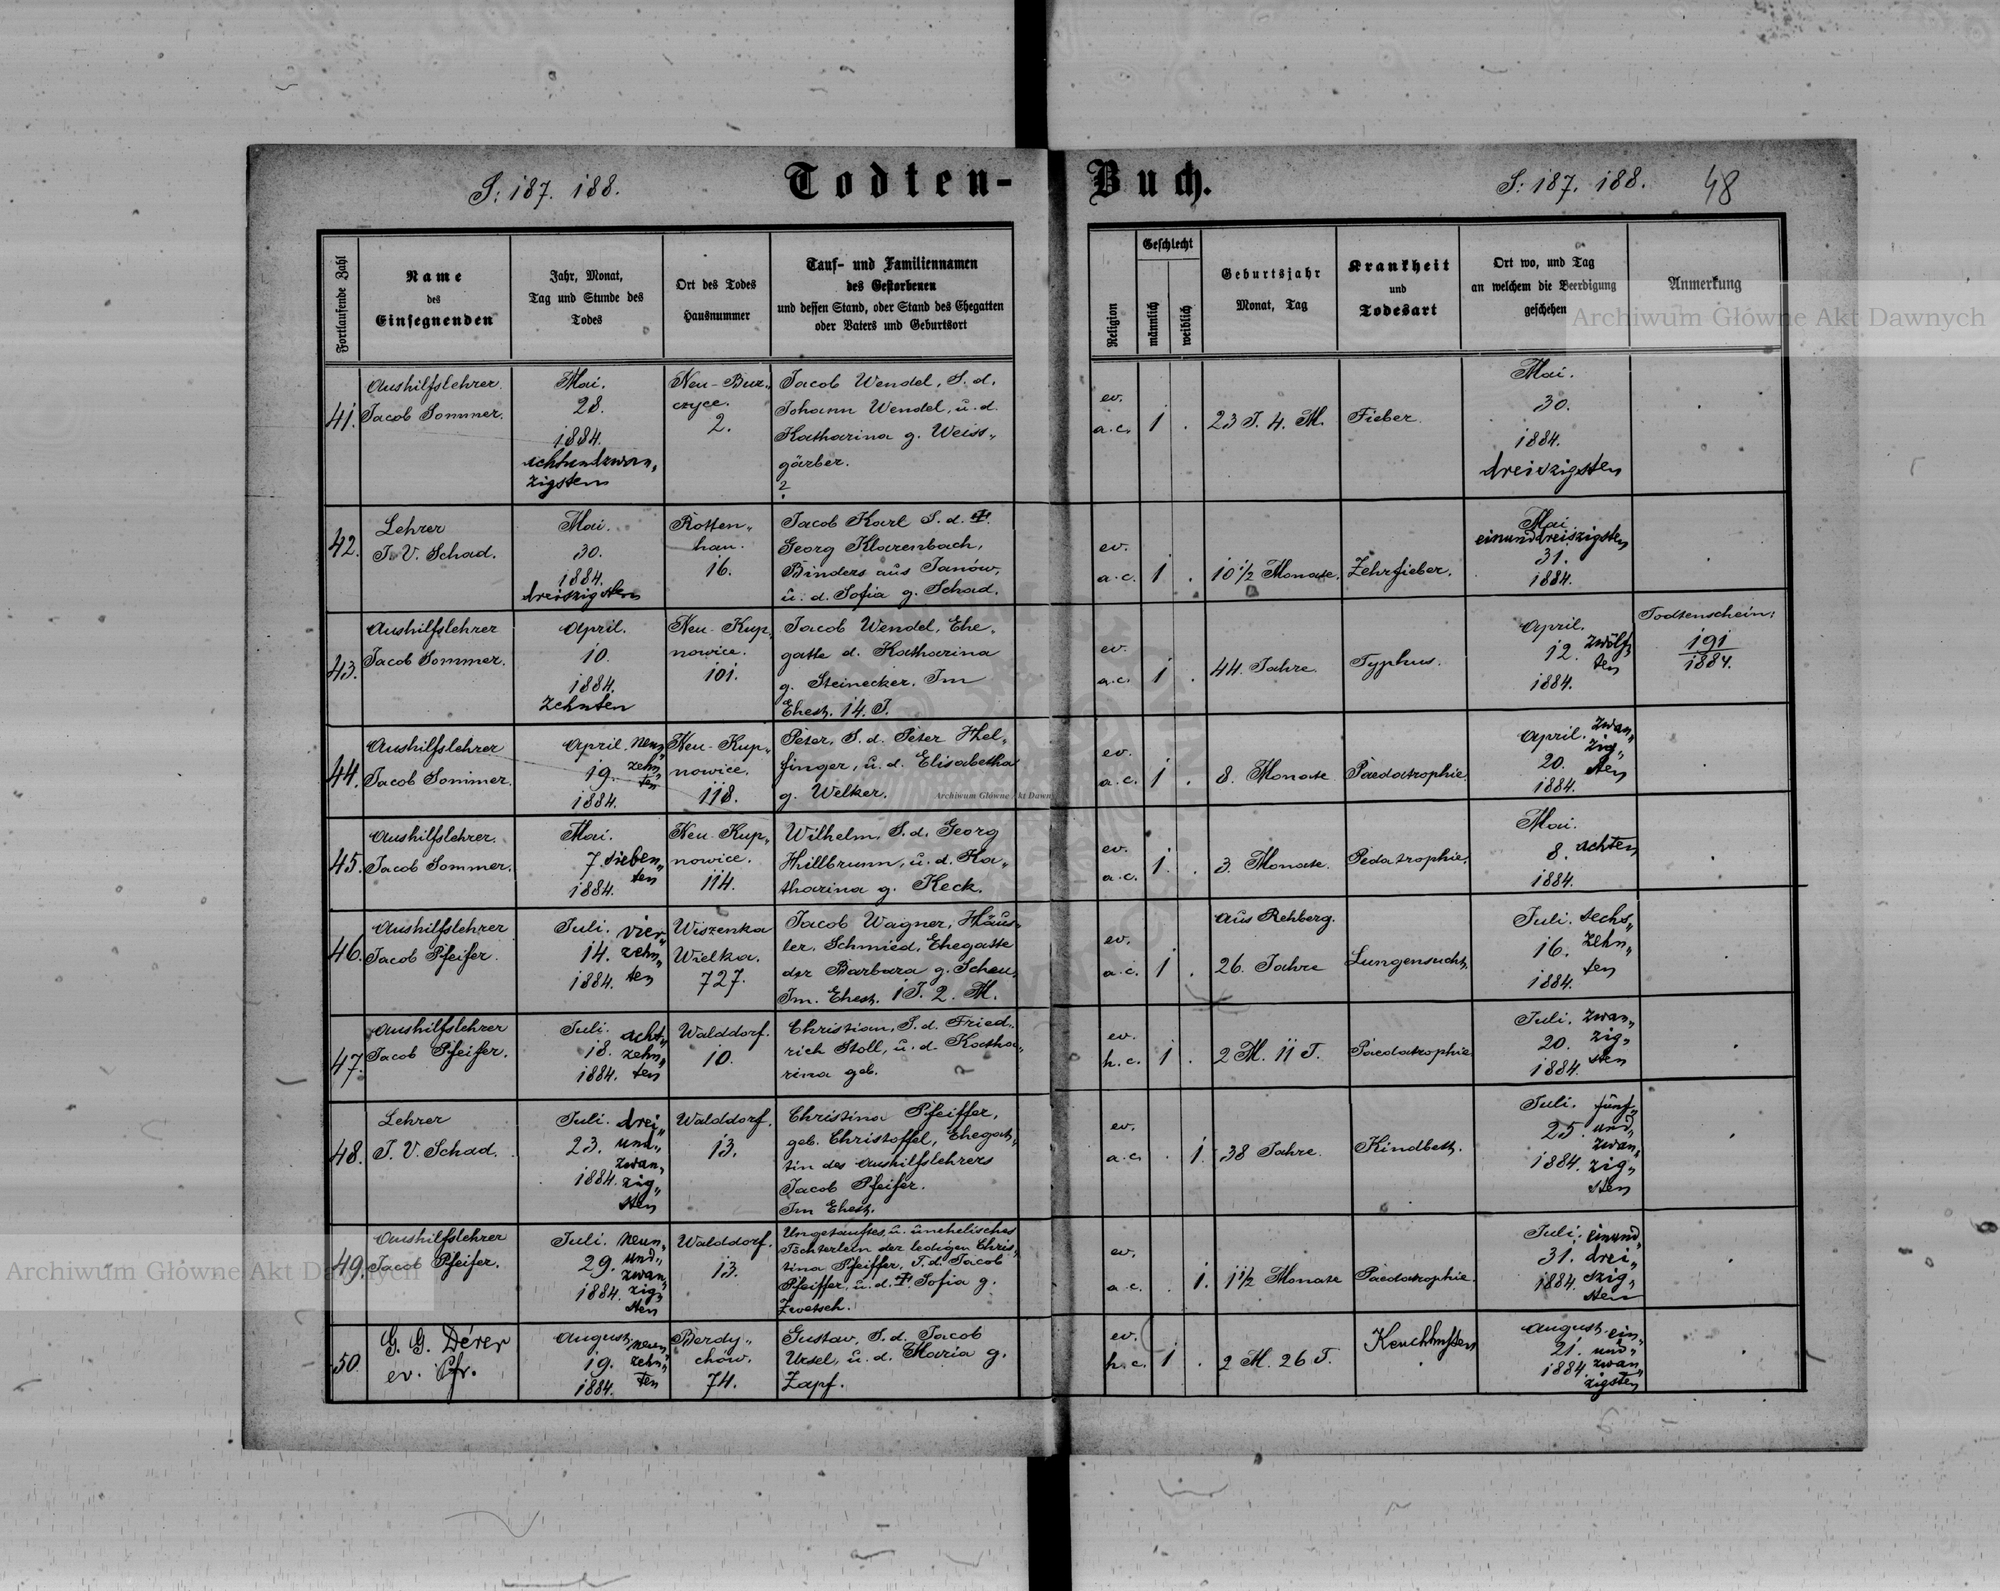 S: 187. 188.
Todten-
Buch.
S: 187. 188.
48
Fortlaufende Zahl
Name
des
Einsegnenden
Jahr, Monat,
Tag und Stunde des
Todes
Ort des Todes
Hausnummer
Tauf- und Familiennamen
des Gestorbenen
und dessen Stand, oder Stand des Ehegatten
oder Vaters und Geburtsort
Religion
Geschlecht
männlich
weiblich
Geburtsjahr
Monat, Tag
Krankheit
und
Todesart
Ort wo, und Tag
an welchem die Beerdigung
geschehen
Anmerkung
Archiwum Główne Akt Dawnych
41.
Aushilfslehrer.
Jacob Sommer.
Mai.
28.
1884.
achtundzwan„
zigsten
Neu-Bur„
czyce.
2.
Jacob Wendel, S. d.
Johann Wendel, u. d.
Katharina g. Weiss„
gärber.
?
ev.
a. c.
1
.
23 J. 4. M.
Fieber.
Mai.
30.
1884.
dreizigsten
42.
Lehrer
J. V. Schad.
Mai.
30.
1884.
dreiszigsten
Rotten„
han.
16.
Jacob Karl S. d. ‡.
Georg Klarenbach,
Binders aus Janów,
u. d. Sofia g. Schad.
ev.
a. c.
1
.
10 1/2 Monate.
Zehrfieber.
Mai
einunddreiszigsten
31.
1884.
.
43.
Aushilfslehrer
Jacob Sommer.
April.
10.
1884.
Zehnten
Neu-Kup„
nowice.
101.
Jacob Wendel, Ehe„
gatte d. Katharina
g. Steinecker. Im
Ehest. 14. J.
ev.
a. c.
1
.
44. Jahre
Typhus.
April.
12. zwölf„
ten
1884.
Todtenschein:
191
1884.
44.
Aushilfslehrer
Jacob Sommer.
April. neun„
19. zehn„
ten
1884.
Neu-Kup„
nowice.
118.
Peter, S. d. Peter Hel„
finger, u. d. Elisabetha
g. Welker.
Archiwum Główne Akt Dawny
ev.
a. c.
1
.
8. Monate
Paedatrophie.
April. zwan„
zig„
20. sten
1884.
.
45.
Aushilfslehrer.
Jacob Sommer.
Mai.
7. sieben„
ten
1884.
Neu-Kup„
nowice.
114.
Wilhelm, S. d. Georg
Hillbrunn, u. d. Ka„
tharina g. Keck.
ev.
a. c.
1.
.
3. Monate.
Pedatrophie.
Mai.
8. achten
1884.
.
46.
Aushilfslehrer
Jacob Pfeifer.
Juli. vier„
14. zehn„
1884. ten
Wiszenka
Wielka.
727.
Jacob Wagner, Häus„
ler, Schmied, Ehegatte
der Barbara g. Scheu,
Im. Ehest. 1 J. 2. M.
ev.
a. c.
1
.
Aus Rehberg.
26. Jahre
Lungensucht.
Juli. sechs„
16. zehn„
ten
1884.
47.
Aushilfslehrer
Jacob Pfeifer.
Juli. acht„
18. zehn„
1884. ten
Walddorf.
10.
Christian, S. d. Fried„
rich Stoll, u. d. Katha„
rina geb. ?
ev.
h. c.
1
.
2 M. 11 T.
Paedatrophie
Juli. zwan„
20. zig„
1884. sten
.
48.
Lehrer
J. V. Schad.
Juli. drei„
23. und„
zwan„
1884. zig„
sten
Walddorf.
13.
Christina Pfeiffer,
geb. Christoffel, Ehegat„
tin des Aushilfslehrers
Jacob Pfeifer.
Im Ehest.
ev.
a. c.
.
1.
38 Jahre.
Kindbett.
Juli. fünf„
25. und„
zwan„
1884. zig„
sten
.
49.
Aushilfslehrer
Jacob Pfeifer.
Juli. neun„
29. und„
zwan„
1884. zig„
sten
Walddorf.
13.
Ungetauftes, u. unehelisches
Töchterlein der ledigen Chris„
tina Pfeiffer, T. d. Jacob
Pfeiffer, u. d. ‡ Sofia g.
Zwetsch.
ev.
a. c.
.
1.
1 1/2 Monate
Paedatrophie.
Juli. einund„
31. drei„
1884. szig„
sten
.
Archiwum Główne Akt Dawnych
50.
G. G. Dérer
ev. Pfr.
August. neun„
19. zehn„
1884. ten
Berdy„
chów.
74.
Gustav, S. d. Jacob
Ursel, u. d. Maria g.
Zapf.
ev.
h. c.
1
.
2 M. 26 T.
Keuchhusten
August. ein„
21. und„
1884. zwan„
zigsten
.